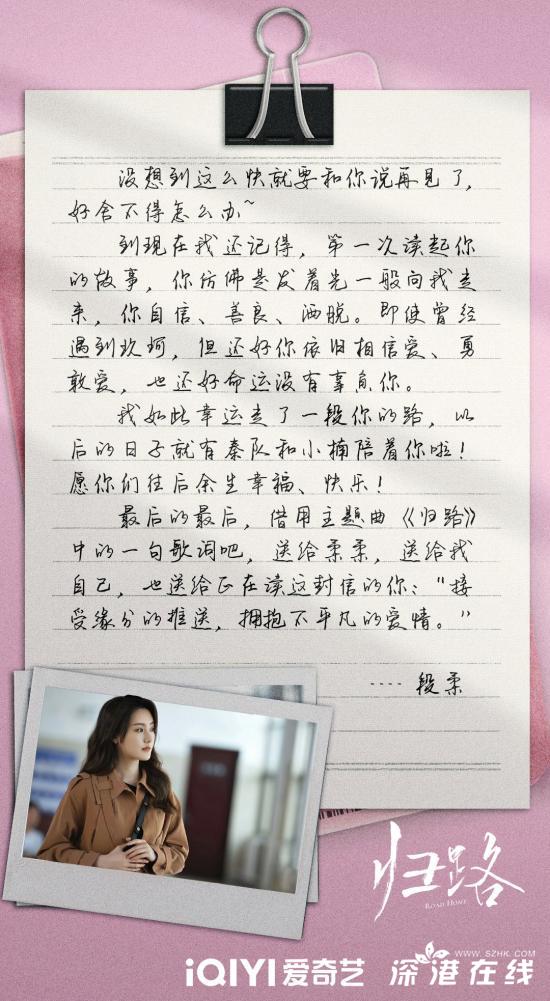 没想到这么快就要和你说再见了，
好舍不得怎么办~
到现在我还记得，第一次读起你
的故事，你仿佛是发着光一般向我走
来，你自信、善良、洒脱。即使曾经
遇到坎坷，但还好你依旧相信爱、勇
敢爱，也还好命运没有辜负你。
我如此幸运走了一段你的路，以
后的日子就有秦队和小楠陪着你啦！
愿你们往后余生幸福、快乐！
最后的最后，借用主题曲《归路》
中的一句歌词吧，送给柔柔，送给我
自己，也送给正在读这封信的你：“接
受缘分的推送，拥抱不平凡的爱情。”
---- 段柔
归路
ROAD HOME
WWW.SZHK.COM
iQIYI爱奇艺 深港在线